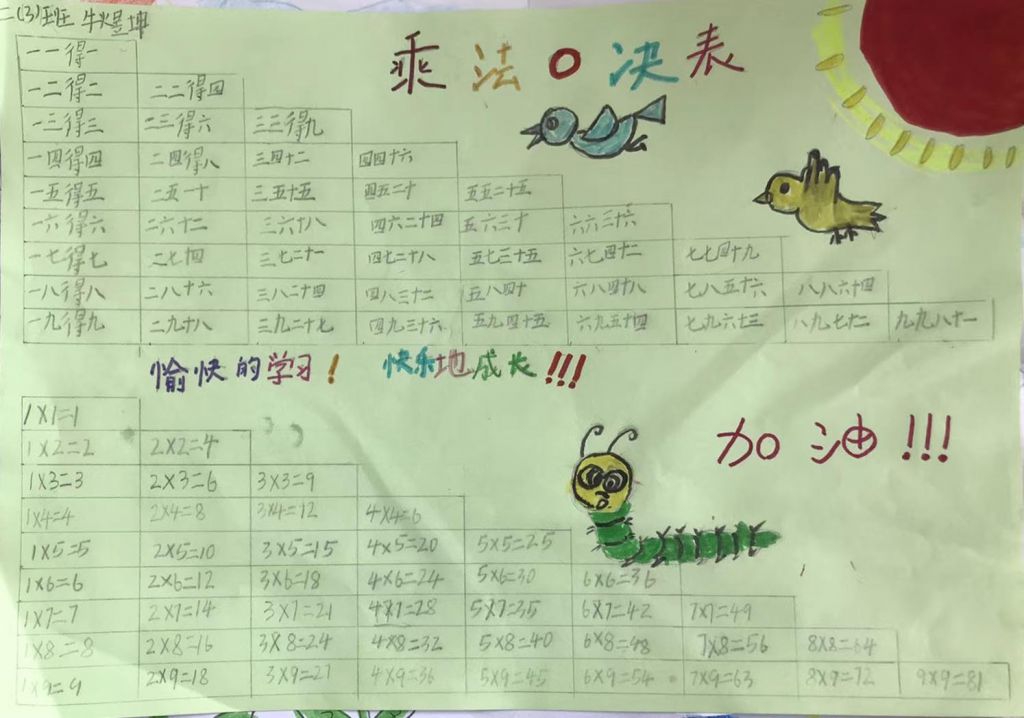 二(3)班 牛煜坤
乘法口决表
一一得一
一二得二 二二得四
一三得三 二三得六 三三得九
一四得四 二四得八 三四十二 四四十六
一五得五 二五一十 三五十五 四五二十 五五二十五
一六得六 二六十二 三六十八 四六二十四 五六三十 六六三十六
一七得七 二七十四 三七二十一 四七二十八 五七三十五 六七四十二 七七四十九
一八得八 二八十六 三八二十四 四八三十二 五八四十 六八四十八 七八五十六 八八六十四
一九得九 二九十八 三九二十七 四九三十六 五九四十五 六九五十四 七九六十三 八九七十二 九九八十一
愉快的学习! 快乐地成长!!!
加油!!!
1×1=1
1×2=2 2×2=4
1×3=3 2×3=6 3×3=9
1×4=4 2×4=8 3×4=12 4×4=6
1×5=5 2×5=10 3×5=15 4×5=20 5×5=25
1×6=6 2×6=12 3×6=18 4×6=24 5×6=30 6×6=36
1×7=7 2×7=14 3×7=21 4×7=28 5×7=35 6×7=42 7×7=49
1×8=8 2×8=16 3×8=24 4×8=32 5×8=40 6×8=48 7×8=56 8×8=64
1×9=9 2×9=18 3×9=27 4×9=36 5×9=45 6×9=54 7×9=63 8×9=72 9×9=81